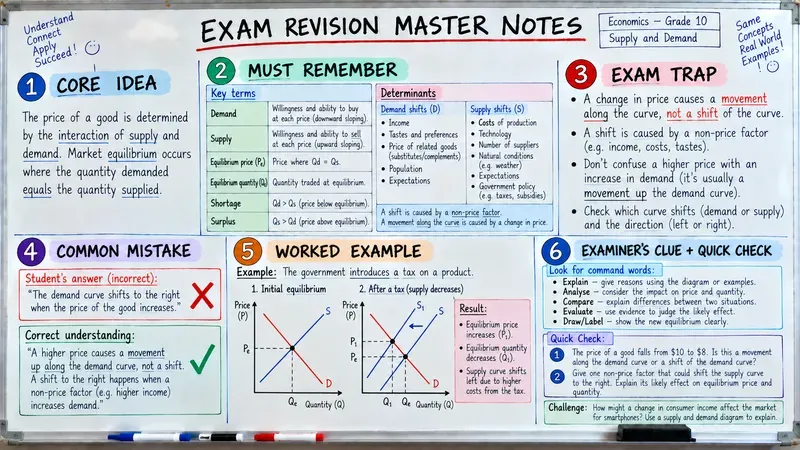 Understand
Connect
Apply
Succeed!
EXAM REVISION MASTER NOTES
Economics – Grade 10
Supply and Demand
Same
Concepts
Real World
Examples!
1 CORE IDEA
The price of a good is determined
by the interaction of supply and
demand. Market equilibrium occurs
where the quantity demanded
equals the quantity supplied.
2 MUST REMEMBER
Key terms
Demand
Willingness and ability to buy
at each price (downward sloping).
Supply
Willingness and ability to sell
at each price (upward sloping).
Equilibrium price (Pe)
Price where Qd = Qs.
Equilibrium quantity (Q)
Quantity traded at equilibrium.
Shortage
Qd > Qs (price below equilibrium).
Surplus
Qs > Qd (price above equilibrium).
Determinants
Demand shifts (D)
• Income
• Tastes and preferences
• Price of related goods
(substitutes/complements)
• Population
• Expectations
Supply shifts (S)
• Costs of production
• Technology
• Number of suppliers
• Natural conditions
(e.g. weather)
• Expectations
• Government policy
(e.g. taxes, subsidies)
A shift is caused by a non-price factor.
A movement along the curve is caused by a change in price.
3 EXAM TRAP
• A change in price causes a movement
along the curve, not a shift of the curve.
• A shift is caused by a non-price factor
(e.g. income, costs, tastes).
• Don't confuse a higher price with an
increase in demand (it's usually a
movement up the demand curve).
• Check which curve shifts (demand or supply)
and the direction (left or right).
4 COMMON MISTAKE
Student's answer (incorrect):
"The demand curve shifts to the right
when the price of the good increases."
Correct understanding:
"A higher price causes a movement
up along the demand curve, not a shift.
A shift to the right happens when a
non-price factor (e.g. higher income)
increases demand."
5 WORKED EXAMPLE
Example: The government introduces a tax on a product.
1. Initial equilibrium
Price
(P)
S
Pe
D
Qe
Quantity (Q)
2. After a tax (supply decreases)
Price
(P)
S1
S
P1
Pe
D
Q1
Qe
Quantity (Q)
Result:
• Equilibrium price
increases (P1).
• Equilibrium quantity
decreases (Q1).
• Supply curve shifts
left due to higher
costs from the tax.
6 EXAMINER'S CLUE + QUICK CHECK
Look for command words:
• Explain – give reasons using the diagram or examples.
• Analyse – consider the impact on price and quantity.
• Compare – explain differences between two situations.
• Evaluate – use evidence to judge the likely effect.
• Draw/Label – show the new equilibrium clearly.
Quick Check:
1 The price of a good falls from $10 to $8. Is this a movement
along the demand curve or a shift of the demand curve?
2 Give one non-price factor that could shift the supply curve
to the right. Explain its likely effect on equilibrium price and
quantity.
Challenge: How might a change in consumer income affect the market
for smartphones? Use a supply and demand diagram to explain.